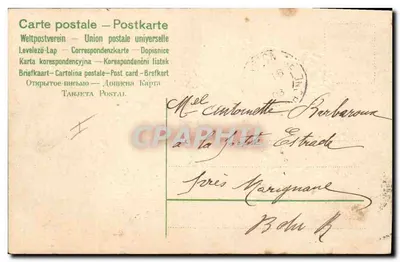 Carte postale — Postkarte
Weltpostverein — Union postale universelle
Levelező-Lap — Correspondenzkarte — Dopisnice
Karta korespondencyjna — Korespondenční lístek
Briefkaart — Cartolina postale — Post card — Brefkort
Открытое письмо — Дописна Карта
TARJETA POSTAL
Mel Antoinette Barbaroux
à la petite Estrade
près Marignane
B du R
CPAPHIL